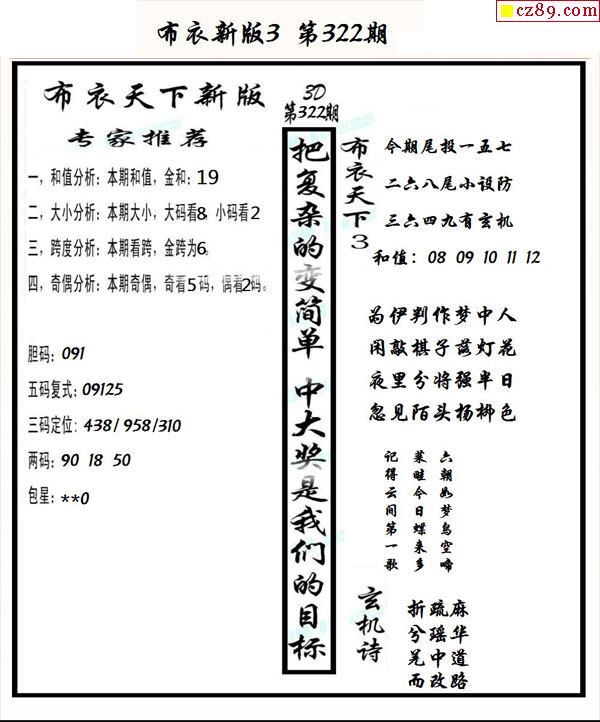 cz89.com
布衣新版3 第322期
布衣天下新版
专家推荐
一，和值分析：本期和值，金和：19
二，大小分析：本期大小，大码看8，小码看2
三，跨度分析：本期看跨，金跨为6。
四，奇偶分析：本期奇偶，奇看5码，偶看2码。
胆码：091
五码复式：09125
三码定位：438/958/310
两码：90 18 50
包星：**0
3D
第322期
把复杂的变简单 中大奖是我们的目标
布衣天下3
今期尾投一五七
二六八尾小设防
三六四九有玄机
和值：08 09 10 11 12
为伊判作梦中人
闲敲棋子落灯花
夜里分将强半日
忽见陌头杨柳色
六朝如梦鸟空啼
菜畦今日蝶来多
记得云间第一歌
玄机诗
折疏麻
兮瑶华
羌中道
而改路